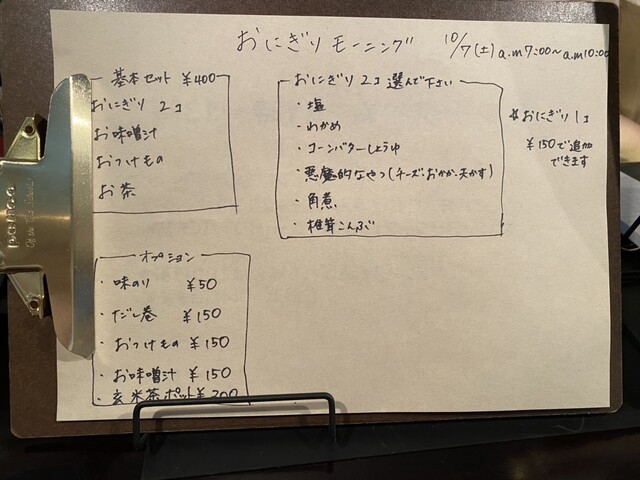 おにぎりモーニング 10/7(土) a.m7:00〜a.m10:00
基本セット ¥400
おにぎり 2コ
お味噌汁
おつけもの
お茶
おにぎり 2コ 選んで下さい
・塩
・わかめ
・コーンバターしょうゆ
・悪魔的なやつ(チーズ・おかか・天かす)
・角煮
・椎茸こんぶ
*おにぎり1コ
¥150で追加
できます
オプション
・味のり ¥50
・だし巻 ¥150
・おつけもの ¥150
・お味噌汁 ¥150
・玄米茶ポット¥200